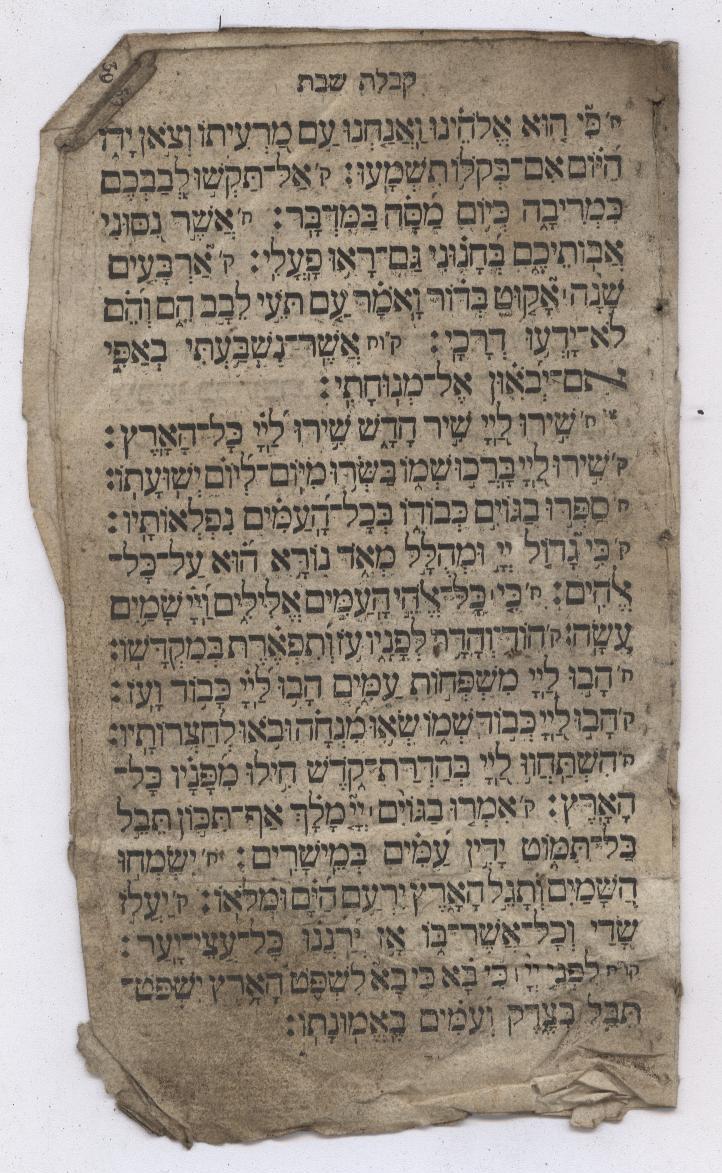 קבלת שבת
ק׳ כִּי הוּא אֱלֹהֵינוּ וַאֲנַחְנוּ עַם מַרְעִיתוֹ וְצֹאן יָדוֹ
הַיּוֹם אִם־בְּקֹלוֹ תִשְׁמָעוּ׃ ק׳ אַל־תַּקְשׁוּ לְבַבְכֶם
כִּמְרִיבָה כְּיוֹם מַסָּה בַּמִּדְבָּר׃ ח׳ אֲשֶׁר נִסּוּנִי
אֲבוֹתֵיכֶם בְּחָנוּנִי גַּם־רָאוּ פָעֳלִי׃ ק׳ אַרְבָּעִים
שָׁנָה אָקוּט בְּדוֹר וָאֹמַר עַם תֹּעֵי לֵבָב הֵם וְהֵם
לֹא־יָדְעוּ דְרָכָי׃ ק׳וח אֲשֶׁר־נִשְׁבַּעְתִּי בְאַפִּי
אִם־יְבֹאוּן אֶל־מְנוּחָתִי׃
ח׳ שִׁירוּ לַיְיָ שִׁיר חָדָשׁ שִׁירוּ לַיְיָ כָּל־הָאָרֶץ׃
ק׳ שִׁירוּ לַיְיָ בָּרְכוּ שְׁמוֹ בַּשְּׂרוּ מִיּוֹם־לְיוֹם יְשׁוּעָתוֹ׃
ח׳ סַפְּרוּ בַגּוֹיִם כְּבוֹדוֹ בְּכָל־הָעַמִּים נִפְלְאוֹתָיו׃
ק׳ כִּי גָדוֹל יְיָ וּמְהֻלָּל מְאֹד נוֹרָא הוּא עַל־כָּל־
אֱלֹהִים׃ ח׳ כִּי כָּל־אֱלֹהֵי הָעַמִּים אֱלִילִים וַיְיָ שָׁמַיִם
עָשָׂה׃ ק׳ הוֹד־וְהָדָר לְפָנָיו עֹז וְתִפְאֶרֶת בְּמִקְדָּשׁוֹ׃
ח׳ הָבוּ לַיְיָ מִשְׁפְּחוֹת עַמִּים הָבוּ לַיְיָ כָּבוֹד וָעֹז׃
ק׳ הָבוּ לַיְיָ כְּבוֹד שְׁמוֹ שְׂאוּ מִנְחָה וּבֹאוּ לְחַצְרוֹתָיו׃
ח׳ הִשְׁתַּחֲווּ לַיְיָ בְּהַדְרַת־קֹדֶשׁ חִילוּ מִפָּנָיו כָּל־
הָאָרֶץ׃ ק׳ אִמְרוּ בַגּוֹיִם יְיָ מָלָךְ אַף־תִּכּוֹן תֵּבֵל
בַּל־תִּמּוֹט יָדִין עַמִּים בְּמֵישָׁרִים׃ ח׳ יִשְׂמְחוּ
הַשָּׁמַיִם וְתָגֵל הָאָרֶץ יִרְעַם הַיָּם וּמְלֹאוֹ׃ ק׳ יַעֲלֹז
שָׂדַי וְכָל־אֲשֶׁר־בּוֹ אָז יְרַנְּנוּ כָּל־עֲצֵי־יָעַר׃
ק׳וח לִפְנֵי יְיָ כִּי בָא כִּי בָא לִשְׁפֹּט הָאָרֶץ יִשְׁפֹּט־
תֵּבֵל בְּצֶדֶק וְעַמִּים בֶּאֱמוּנָתוֹ׃